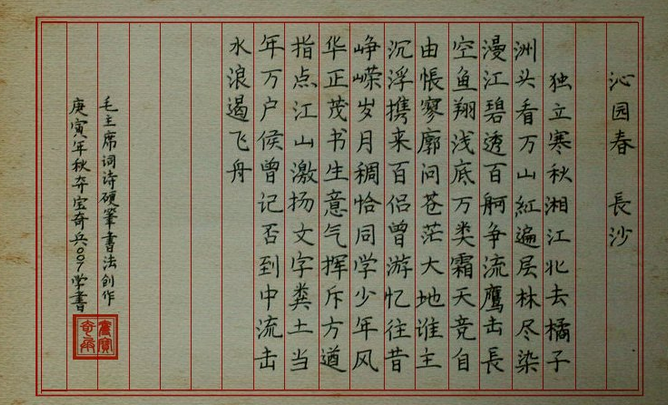 沁园春 長沙
独立寒秋湘江北去橘子
洲头看万山紅遍层林尽染
漫江碧透百舸争流鹰击長
空鱼翔浅底万类霜天竞自
由悵寥廓问苍茫大地谁主
沉浮携来百侣曾游忆往昔
峥嵘岁月稠恰同学少年风
华正茂书生意气挥斥方遒
指点江山激扬文字粪土当
年万户候曾记否到中流击
水浪遏飞舟
毛主席词诗硬筆書法创作
庚寅年秋夺宝奇兵007学書
奪寶
奇兵